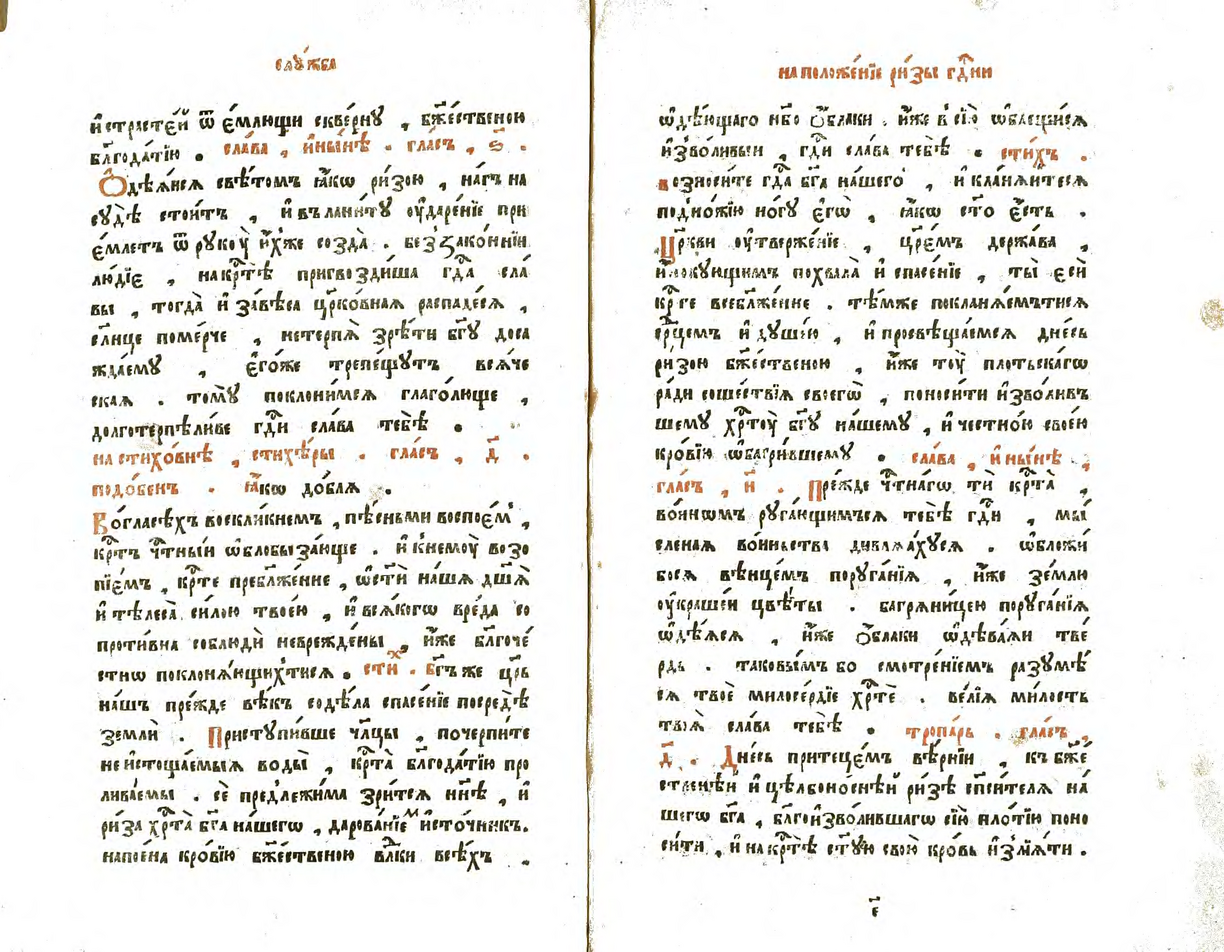 слꙋ́жба
и҆страсте́й ѿ е҆́млющи скве́рнꙋ , бж҃е́ственою
блгⷣода́тїю . сла́ва , и҆ны́нѣ . гла́съ , ѕ҃ .
Ѻ҆дѣ́яися свѣ́томъ ꙗ҆́кѡ ри́зою , на́гъ на
сꙋдѣ̀ стоѧ́тъ , и҆ въ лани́тꙋ ᲂу҆даре́нїе при
е҆́млетъ ѿ рꙋкꙋ̀ и҆́хже созда̀ . беззако́ннїи
лю́дїе , на крⷭ҇тѣ̀ пригвозди́ша гдⷭ҇а сла́
вы , тогда̀ и҆ завѣ́са црⷪ҇ковная распаде́ся ,
сл҃нце поме́рче , не терпѧ̀ зрѣ́ти бг҃ꙋ доса
жда́емꙋ , е҆го́же трепе́щꙋтъ вся́че
ская . томꙋ̀ поклони́мся глаго́люще ,
долготерпѣли́ве гдⷭ҇и сла́ва тебѣ̀ .
на стихо́внѣ , стихѣ́ры . гла́съ , д҃ .
подо́бенъ . ꙗ҆́кѡ до́бля .
Во гласѣ́хъ воскли́кнемъ , пѣ́сньми воспое́мъ ,
крⷭ҇тъ чⷭ҇тны́й ѡ҆блобыза́юще . и҆ к немꙋ̀ возо
пїе́мъ , крⷭ҇те пребл҃же́нне , ѡ҆ст҃ѝ на́шя дш҃ѧ̀
и҆ тѣлеса̀ си́лою твое́ю , и҆ вся́когѡ вре́да со
проти́вна соблюдѝ невреж́дены , и҆́же блг҃оче́
стнѡ покланя́ющихтися . сти́х . бг҃ъ же цр҃ь
на́шъ пре́жде вѣ́къ содѣ́ла спасе́нїе посредѣ̀
землѝ . Пристꙋпи́вше чл҃цы , почерпи́те
неистоща́емыя воды̀ , крⷭ҇та̀ блгⷣода́тїю про
лива́емы . сѐ предлежи́ма зри́тся нн҃ѣ , и҆
ри́за хрⷭ҇та̀ бг҃а на́шегѡ , дарова́нїемъ и҆сто́чникъ .
напое́на кро́вїю бж҃е́ственою влⷣки всѣ́хъ .
на положе́нїе ри́зы гдⷭ҇ни
ѡ҆дѣ́ющаго нб҃о ѻ҆́блаки . и҆́же в сїю̀ ѡ҆блещи́ся
и҆зво́ливыи , гдⷭ҇и сла́ва тебѣ̀ . сти́хъ .
возноси́те гдⷭ҇а бг҃а на́шего , и҆ кла́няйтеся
подно́жїю но́гꙋ е҆гѡ̀ , ꙗ҆́кѡ ст҃о е҆́сть .
Цр҃кви ᲂу҆тверже́нїе , цр҃е́мъ держа́ва ,
и҆ инокꙋющимъ похвала̀ и҆ спасе́нїе , ты̀ е҆сѝ
крⷭ҇те всебл҃же́нне . тѣ́мже покланя́емътися
ср҃цемъ и҆ дꙋше́ю , и҆ просвѣща́емся дне́сь
ри́зою бж҃е́ственою , и҆́же тꙋ̀ плотьска́гѡ
ра́ди соше́ствїѧ своегѡ̀ , поноси́ти и҆зво́ливъ
шемꙋ хрⷭ҇тꙋ̀ бг҃ꙋ на́шемꙋ , и҆ честно́ю свое́ю
кро́вїю ѡ҆багри́вшемꙋ . сла́ва , и҆ ны́нѣ ,
гла́съ , и҃ . Пре́жде чⷭ҇тна́гѡ тѝ крⷭ҇та̀ ,
во́инѡмъ рꙋга́ющимъся тебѣ̀ гдⷭ҇и , мы́
сленая во́иньства дивля́ахꙋся . ѡ҆бложи́
бося вѣнце́мъ порꙋга́нїѧ , и҆́же зе́млю
ᲂу҆краше́й цвѣ́ты . багряни́цею порꙋга́нїѧ
ѡ҆дѣ́яся , и҆́же ѻ҆́блаки ѡ҆дѣва́яи тве́
рдь . таковы́мъ бо смотре́нїемъ разꙋмѣ́
ся твоѐ милосе́рдїе хрⷭ҇тѐ . ве́лїѧ ми́лость
твоѧ̀ сла́ва тебѣ̀ . тропа́рь . гла́съ ,
д҃ . Дне́сь притеце́мъ вѣ́рнїи , къ бж҃е́
ственѣй и҆ цѣльбоно́снѣй ри́зѣ сп҃си́теля на́
шегѡ бг҃а , бл҃гои҆зво́лившагѡ сїю̀ пло́тїю поно
си́ти , и҆ на крⷭ҇тѣ̀ ст҃ꙋ́ю свою̀ кро́вь и҆злїя́ти .
е҃